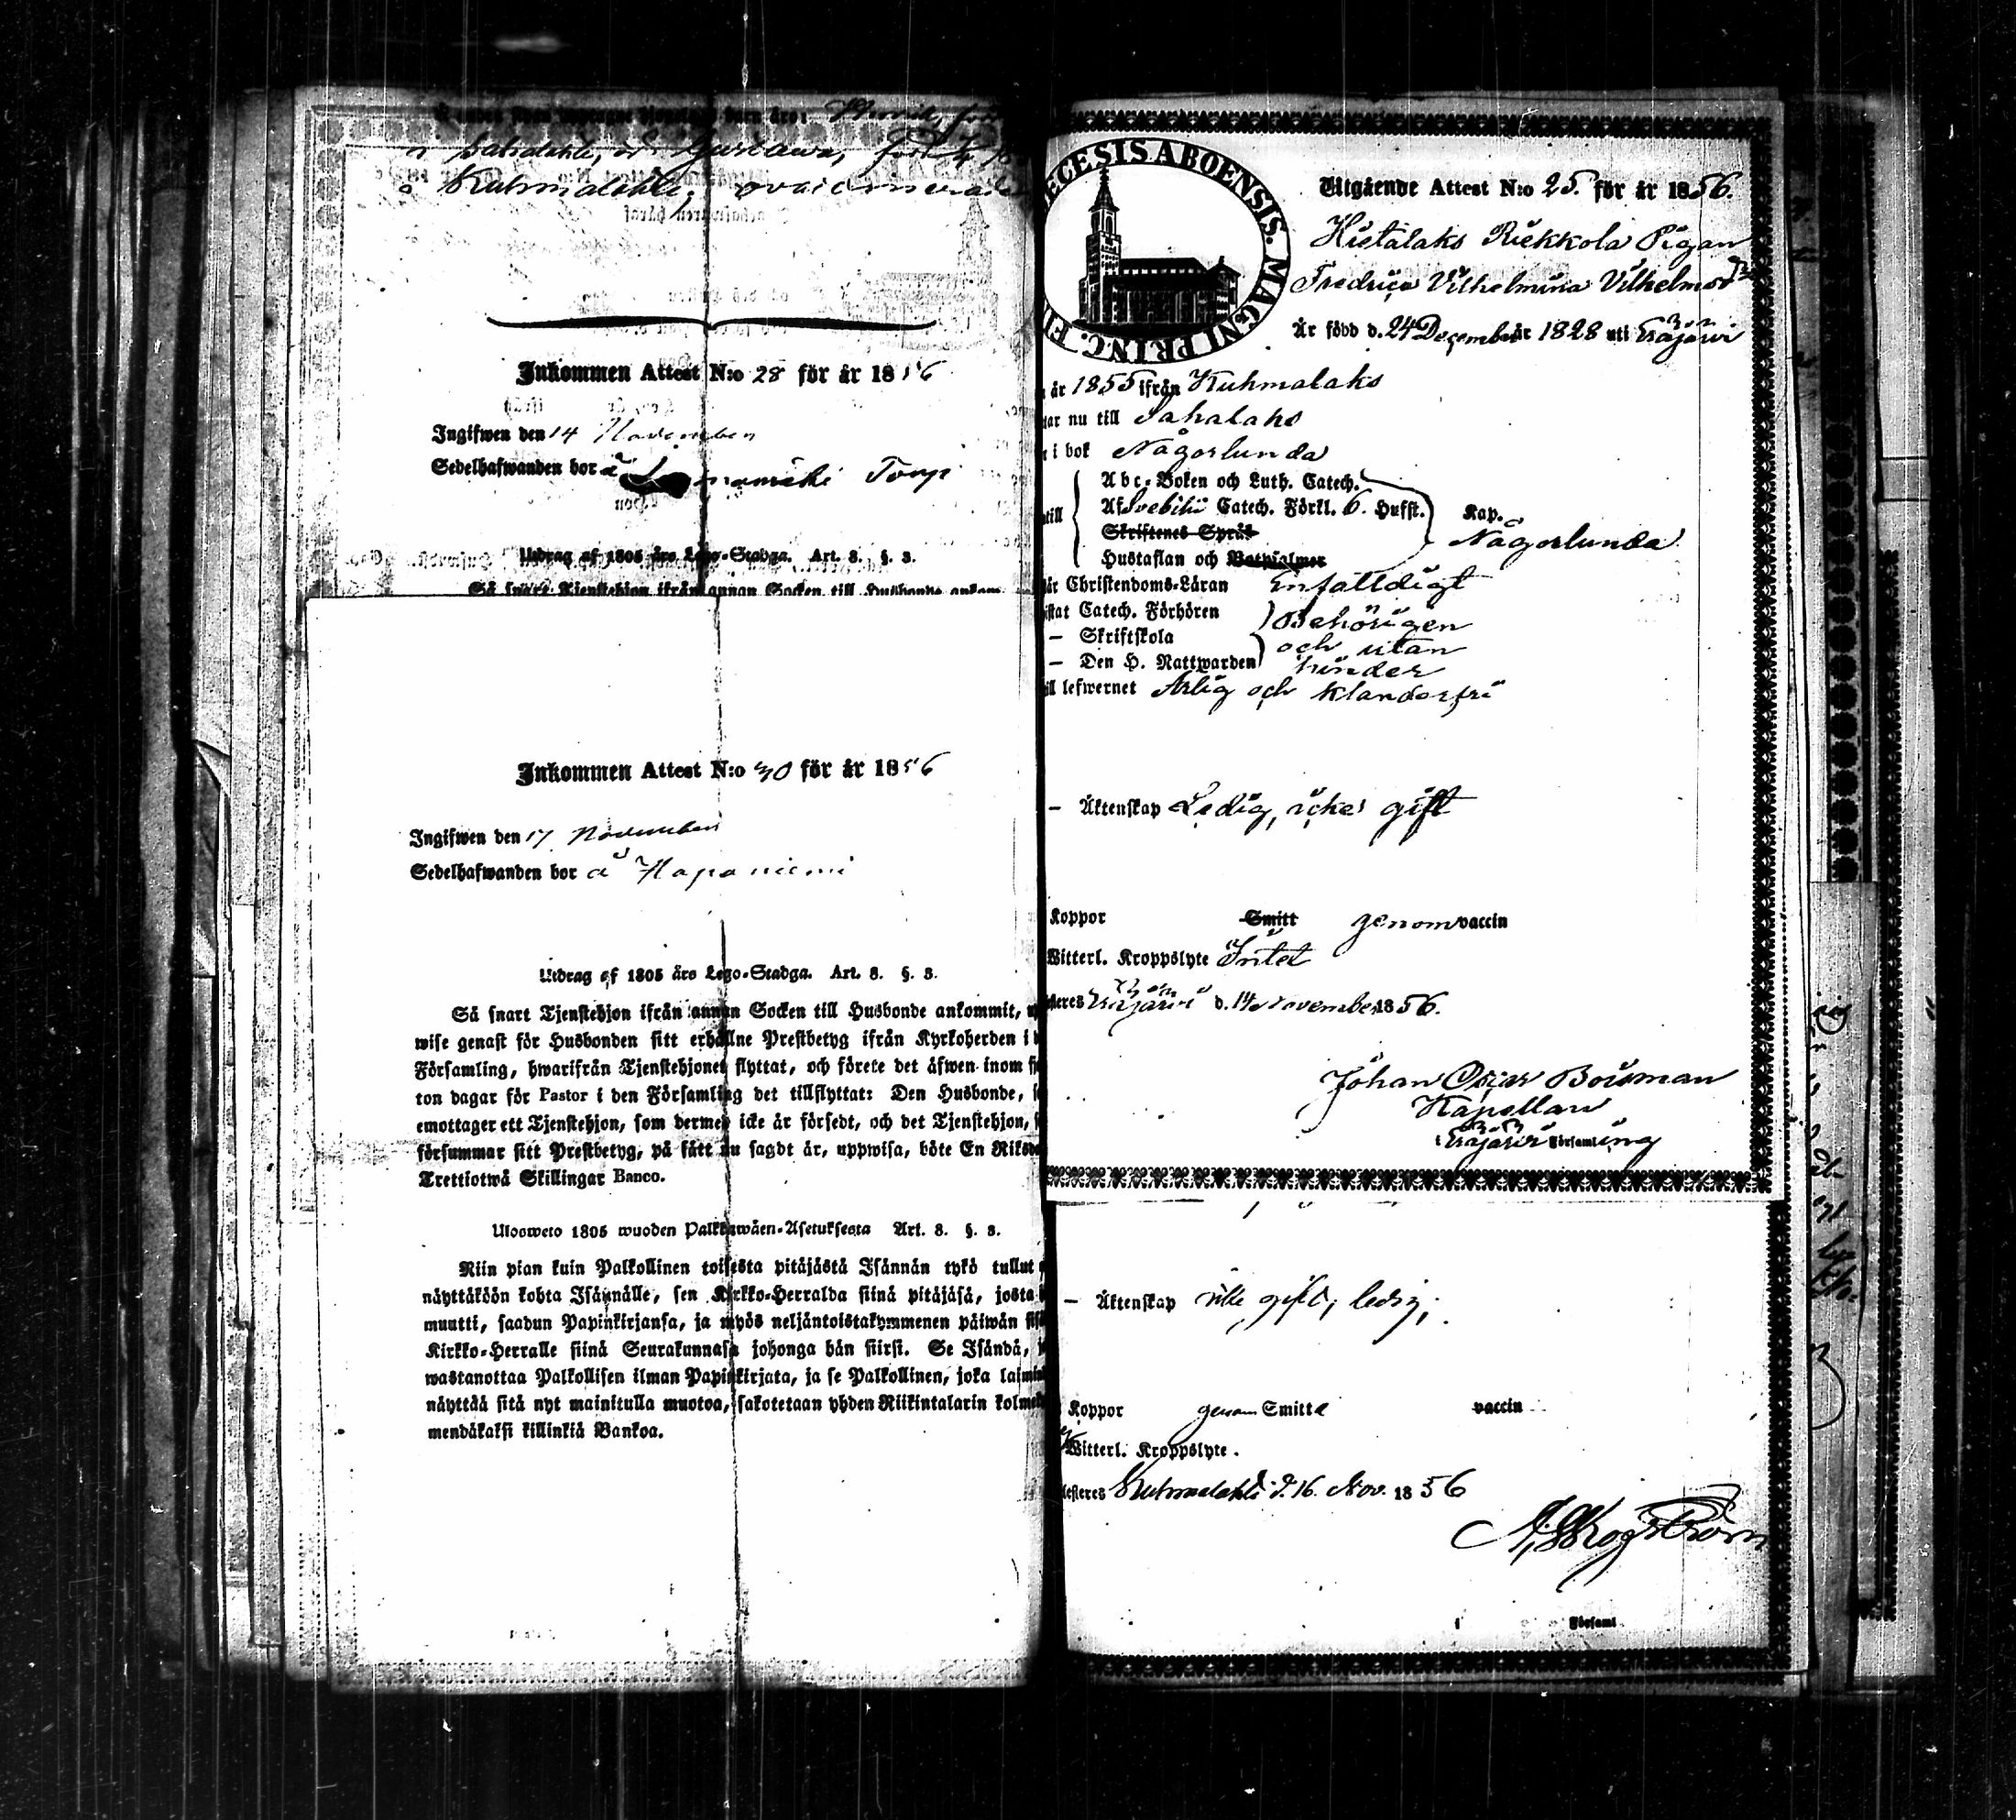 i Sahalahti,
å Kuhmalahti,
Inkommen Attest N:o 28 för år 1856
Ingifwen den 14 November
Sedelhafwanden bor å Torp
Utdrag af 1805 års Lego-Stadga. Art. 8. §. 3.
Så snart Tjenstehjon ifrån annan Socken till Husbonde ankom
Inkommen Attest N:o 30 för år 1856
Ingifwen den 17 November
Sedelhafwanden bor å Haponiemi
Utdrag af 1805 års Lego-Stadga. Art. 8. §. 3.
Så snart Tjenstehjon ifrån annan Socken till Husbonde ankommit,
wise genast för Husbonden sitt erhållne Prestbetyg ifrån Kyrkoherden i
Församling, hwarifrån Tjenstehjonet flyttat, och förete det äfwen inom
ton dagar för Pastor i den Församling det tillflyttat: Den Husbonde,
emottager ett Tjenstehjon, som dermed icke är försedt, och det Tjenstehjon,
försummar sitt Prestbetyg, på sätt nu sagdt är, uppwisa, böte En Riksd
Trettiotwå Skillingar Banco.
Ulosweto 1805 wuoden Palkkawäen-Asetuksesta Art. 8. §. 3.
Niin pian kuin Palkollinen toisesta pitäjästä Isännän tykö tullut
näyttäköön kohta Isännälle, sen Kirkko-Herralda siinä pitäjäsä, josta
muutti, saadun Papinkirjansa, ja myös neljäntoistakymmenen päiwän
Kirkko-Herralle siinä Seurakunnasa johonga hän siirsi. Se Isändä,
wastanottaa Palkollisen ilman Papinkirjata, ja se Palkollinen, joka laimin
näyttää sitä nyt mainitulla muotoa, sakotetaan yhden Riikintalarin kolme
mendäkaksi killinkiä Bankoa.
ECESIS ABOENSIS. MAGNI PRINC. FI
Utgående Attest N:o 25. för år 1856.
Hietalaks Riekkola Pigan
Fredrica Vilhelmina Vilhelmsdr
Är född d. 24 December år 1828 uti Eräjärvi
år 1855 ifrån Kuhmalaks
ar nu till Sahalaks
i bok Någorlunda
Abc-Boken och Luth. Catech.
till Af Svebilii Catech. Förkl. 6. Hufst. Kap.
Skriftenes Språk Någorlunda
Hustaflan och Botpsalmer
är Christendoms-Läran Enfälldigt
stat Catech. Förhören Behörigen
— Skriftskola och utan
— Den H. Nattwarden hinder
ill lefwernet Ärlig och klanderfri
— Äktenskap Ledig, icke gift
Koppor Smitt genom vaccin
Witterl. Kroppslyte Intet
steres Eräjärvi d. 14 November 1856.
Johan Oscar Bonsman
Kapellan
i Eräjärvi Församling
— Äktenskap icke gift, ledig,
Koppor genom Smitta vaccin
Witterl. Kroppslyte.
testeres Kuhmalahti d. 16. Nov. 1856
A. Skogström
i Församl